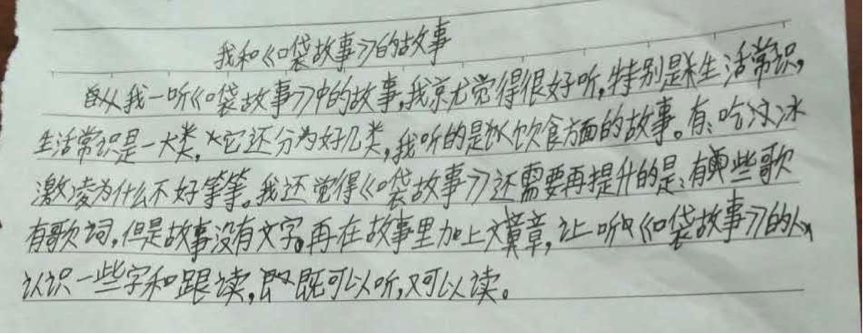 我和《口袋故事》的故事
自从我一听《口袋故事》中的故事,我就觉得很好听,特别是生活常识,
生活常识是一大类,它还分为好几类,我听的是饮食方面的故事。有:吃冰
激凌为什么不好等等。我还觉得《口袋故事》还需要再提升的是:有些歌
有歌词,但是故事没有文字。再在故事里加上文章,让听《口袋故事》的人
认识一些字和跟读,既可以听,又可以读。